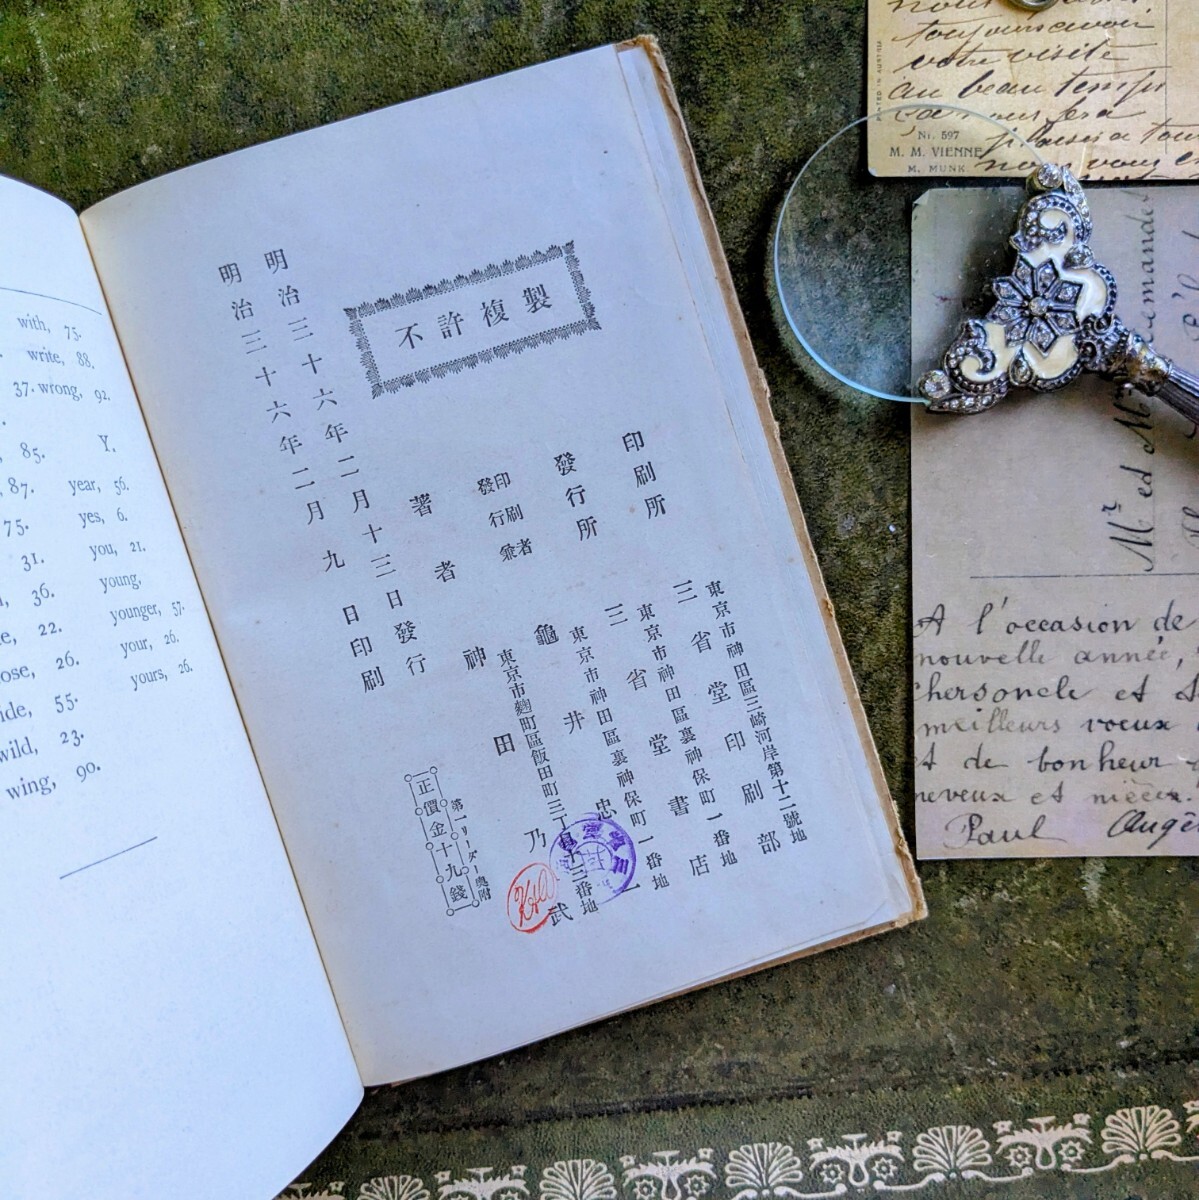 with, 75.
write, 88.
37. wrong, 92.
85. Y.
87. year, 56.
75. yes, 6.
31. you, 21.
36. young.
22. younger, 57.
26. your, 26.
55. yours, 26.
wild, 23.
wing, 90.
明治三十六年二月九日印刷
明治三十六年二月十三日發行
不許複製
著者 神田乃武
東京市麹町區飯田町三丁目十三番地
發行兼印刷者 龜井忠一
東京市神田區裏神保町一番地
發行所 三省堂書店
東京市神田區裏神保町一番地
印刷所 三省堂印刷部
東京市神田區三崎河岸第十二號地
第一リーダー奥附
正價金十九錢
toujours avoir
votre visite
au beau temps
Nr. 597
M. M. VIENNE
M. MUNK
Mr ed Mme
A l'occasion de
nouvelle année,
meilleurs voeux
de bonheur
neveux et nièces.
Paul Angè